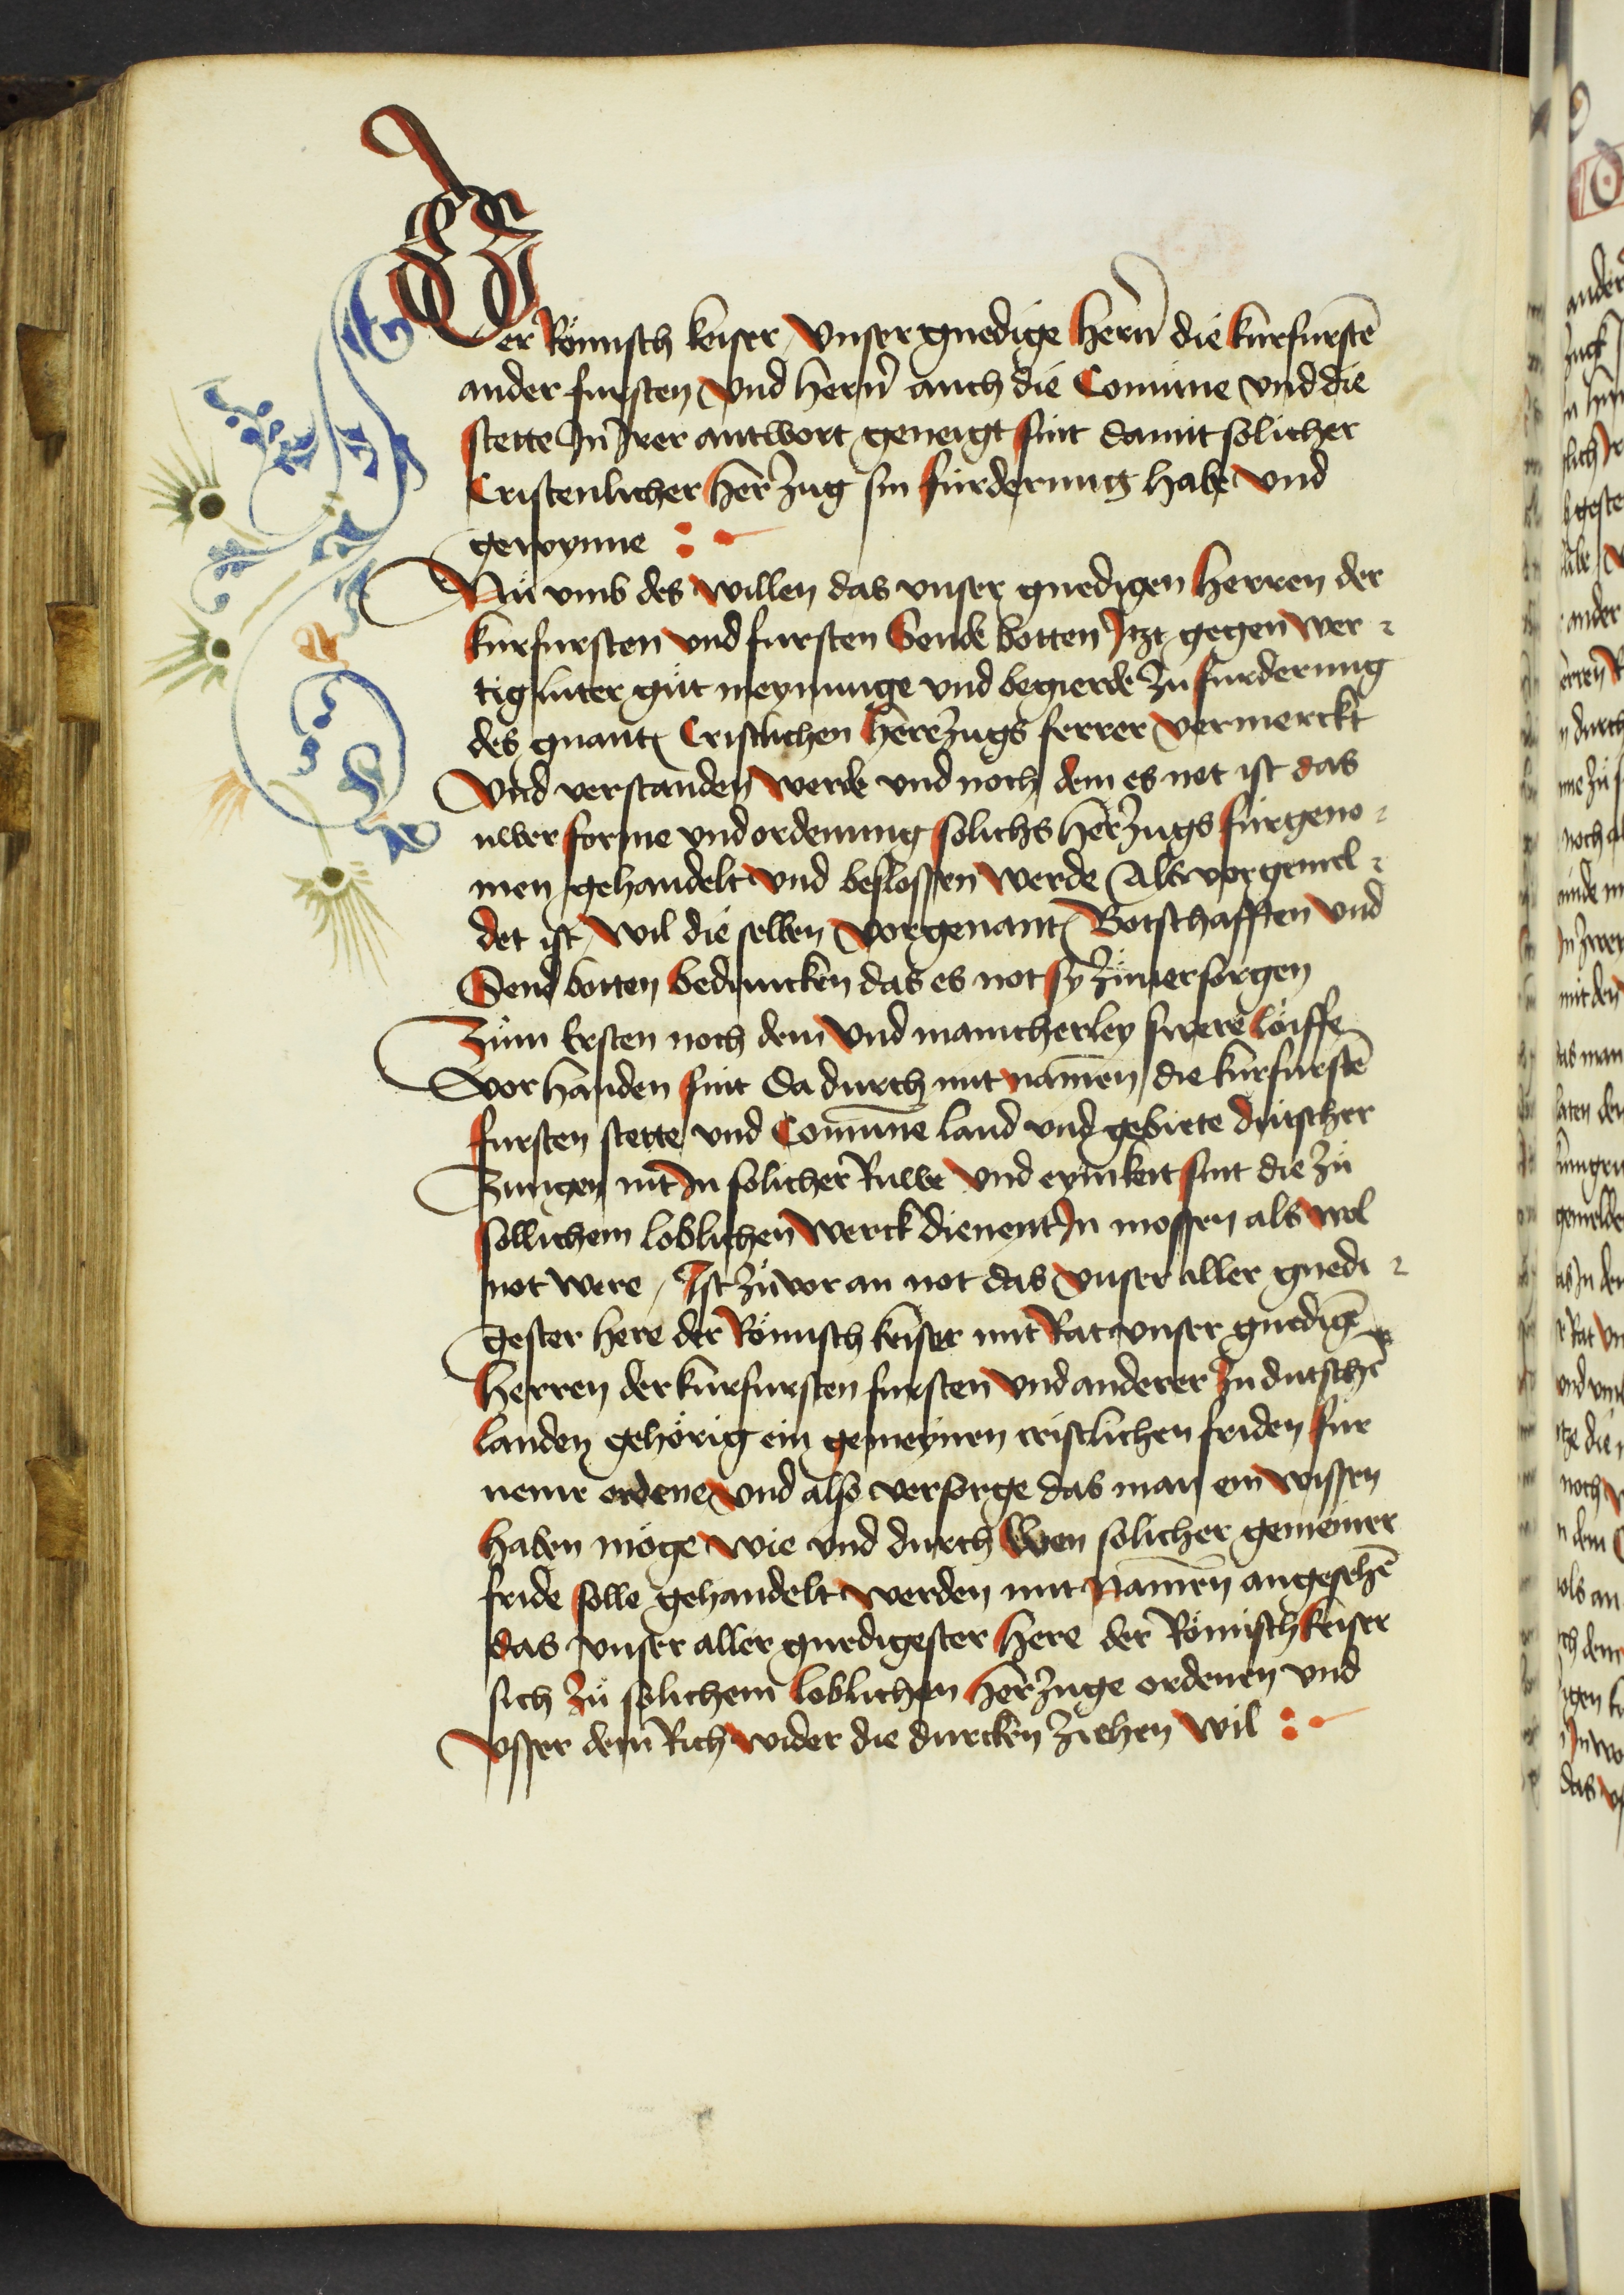 Der Römisch keiser vnser gnedige hern̄ die kurfurstē
ander fursten vnd hern̄ auch die Comüne vnd die
stette In Irer antwort geneigt sint damit solicher
Cristenlicher herzug sin fürderung habe vnd
gewynne :-
Nü vmb des willen das vnser gnedigen herren der
kurfursten vnd fursten Sende botten Itzt gegen wer-
tig luter güt meynunge vnd begierde zu furderung
des gnant Cristlichen herezugs ferrer vermerckt
Vnd verstanden werde vnd noch dem es not ist das
uwer forme vnd ordenung solichs herzugs fürgeno-
men gehandelt vnd beslossen werde Als vorgemel-
det ist wil die selben vorgenant Botschafften vnd
Send botten beduncken das es not sy zuuersorgen
Züm Ersten noch dem vnd mancherley swere löiffe
vorhanden sint Da durch mit namen die kurfurstē
fursten stette vnd Comüne land vnd gebiete dütscher
Zungen nit In solicher Ruwe vnd eynikeit sint die zü
sollichem loblichen werck dienent In mossen als wol
not were / Ist zü vor an not das vnser aller gnedi-
gester here der Römisch keiser mit Rat vnser gnedigē
herren der kurfursten fursten vnd anderer zu dutschē
landen gehörig ein gemeynen cristlichen friden für
neme ordene vnd also versorge das man ein wissen
haben möge wie vnd durch wen solicher gemeiner
fride solle gehandelt werden mit namen angesehē
das vnser aller gnedigester here der Römisch keiser
sich zü solichem loblichen herzuge ordenen vnd
vsser dem Rich wider die durcken ziehen wil :-